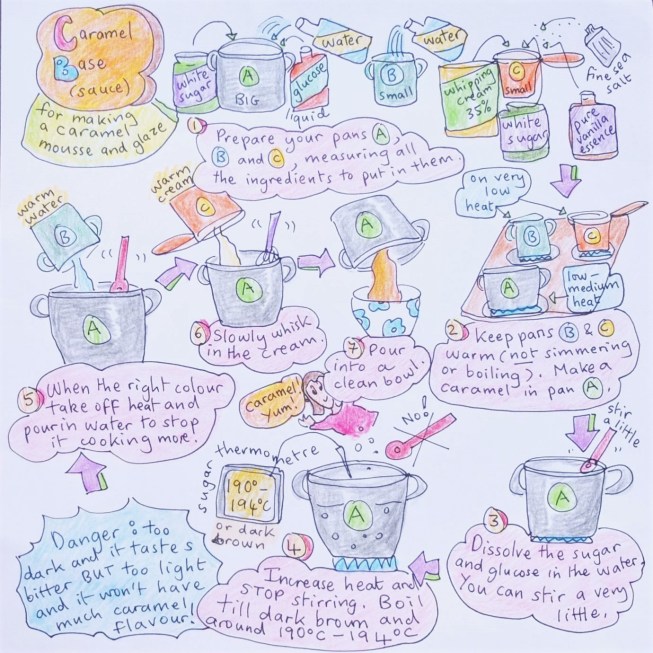 Caramel
Base
(sauce)
for making
a caramel
mousse and glaze
white
sugar
A
BIG
water
glucose
liquid
B
small
water
whipping
cream
35%
C
small
white
sugar
fine sea
salt
pure
vanilla
essence
1 Prepare your pans A,
B and C, measuring all
the ingredients to put in them.
on very
low
heat
B
C
A
low-
medium
heat
2 Keep pans B & C
warm (not simmering
or boiling). Make a
caramel in pan A.
stir
a little
A
3
Dissolve the sugar
and glucose in the water.
You can stir a very
little.
Caramel!
Yum!
No!
sugar thermometre
190°-
194°C
or dark
brown
A
4
Increase heat and
STOP stirring. Boil
till dark brown and
around 190°C-194°C
Danger : too
dark and it tastes
bitter BUT too light
and it won't have
much caramel
flavour!
warm
water
B
A
5 When the right colour
take off heat and
pour in water to stop
it cooking more!
warm
cream
C
A
6 Slowly whisk
in the cream.
A
7 Pour
into a
clean bowl.